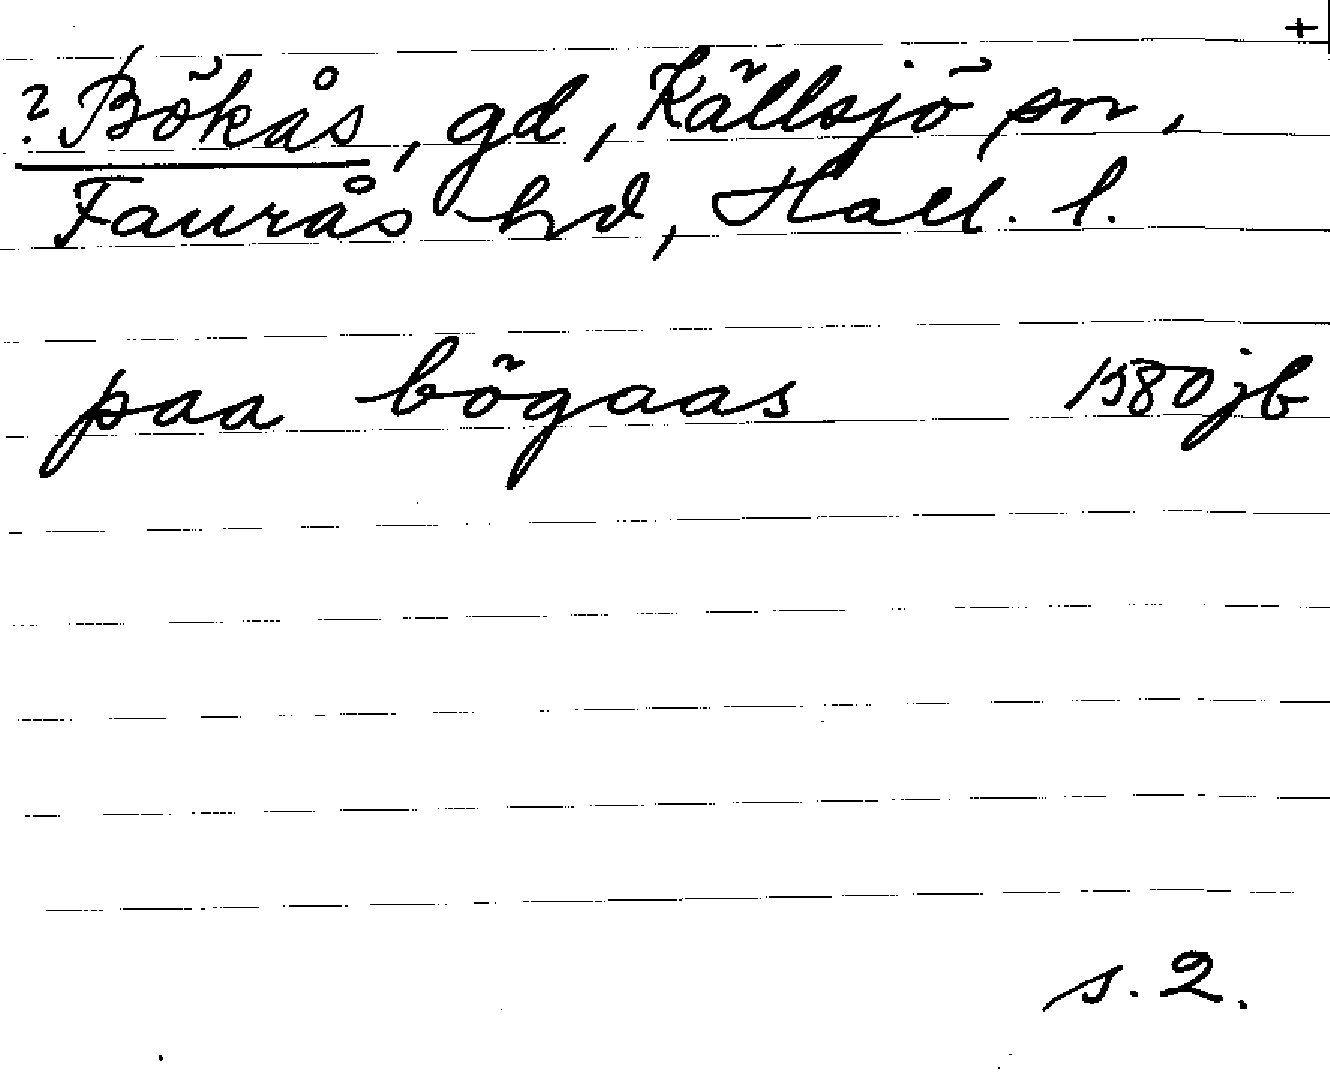 +
? Bökås, gd, Källsjö sn,
Faurås hd, Hall. l.
paa bögaas 1580 jb
s. 2.